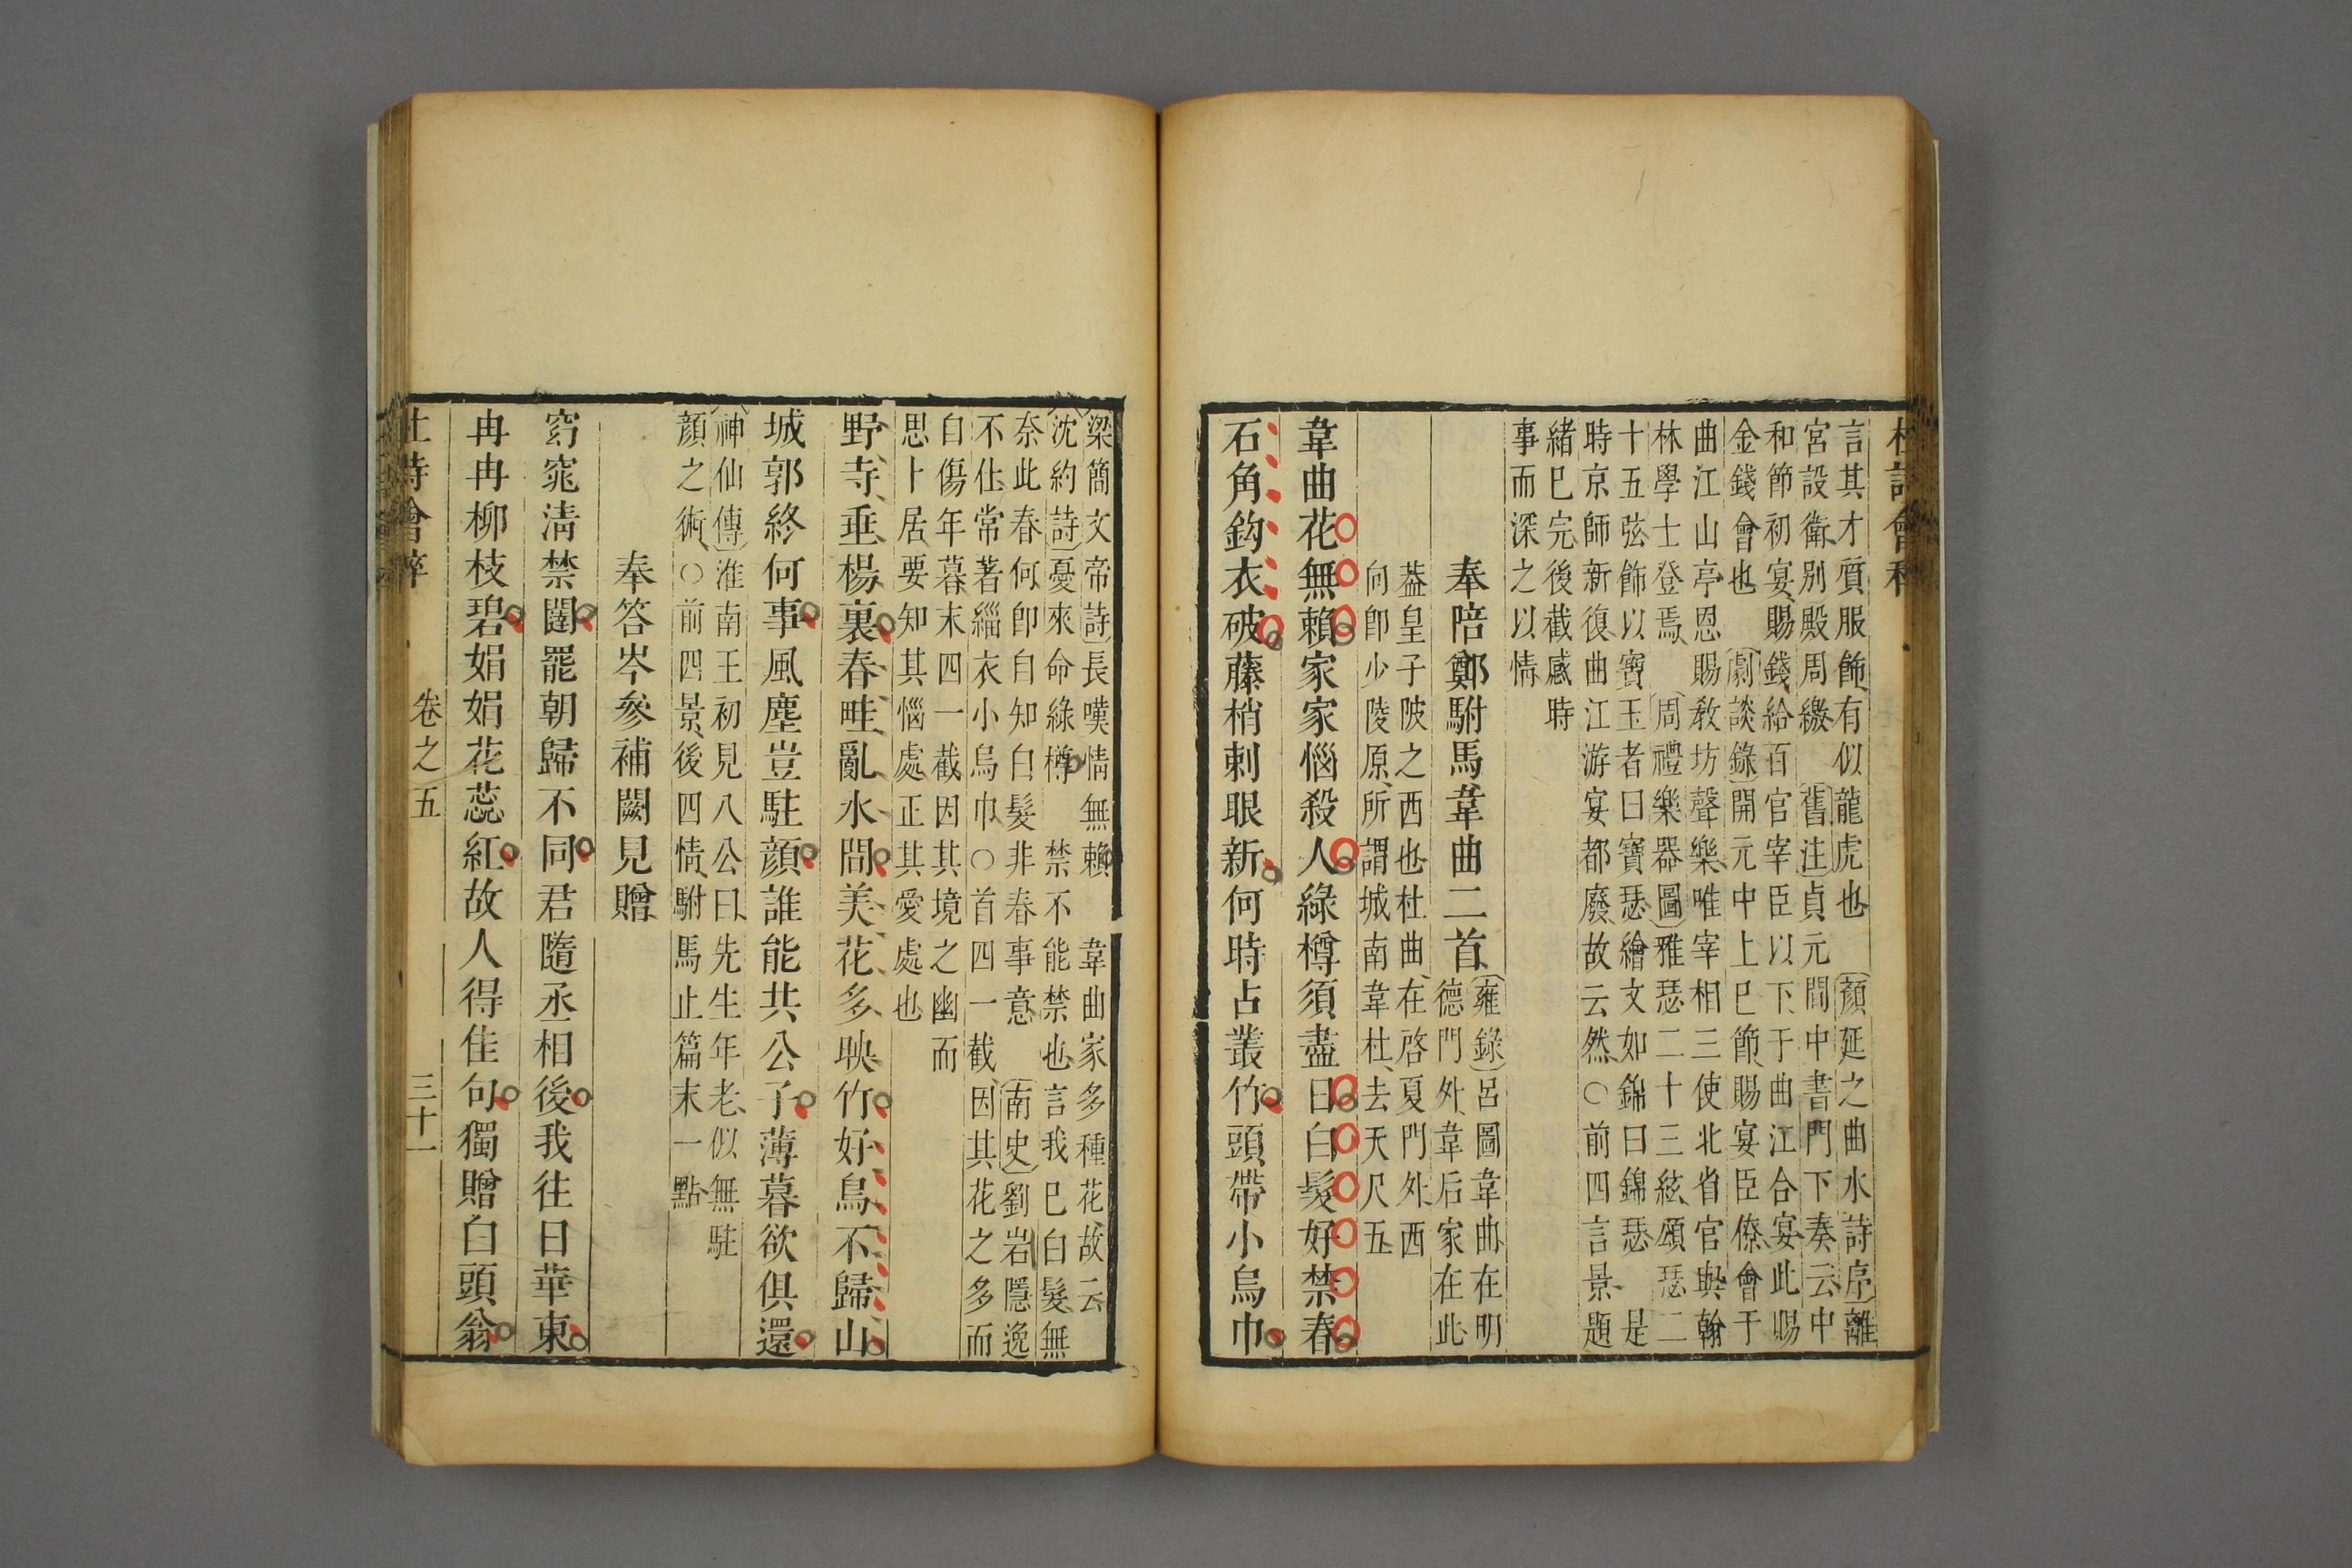 杜詩會稡
言其才質服飾有似龍虎也　顏延之曲水詩序離
宮設衛別殿周繳　舊注貞元間中書門下奏云中
和節初宴賜錢給百官宰臣以下于曲江合宴此賜
金錢會也　劇談錄開元中上巳節賜宴臣僚會于
曲江山亭恩賜敎坊聲樂唯宰相三使北省官與翰
林學士登焉　周禮樂器圖雅瑟二十三絃頌瑟二
十五弦飾以寶玉者曰寶瑟繪文如錦曰錦瑟　是
時京師新復曲江游宴都廢故云然○前四言景題
緒已完後截感時
事而深之以情
奉陪鄭駙馬韋曲二首
雍錄呂圖韋曲在明
德門外韋后家在此
蓋皇子陂之西也杜曲在啓夏門外西
向卽少陵原所謂城南韋杜去天尺五
韋曲花無賴家家惱殺人綠樽須盡日白髮好禁春
石角鈎衣破藤梢刺眼新何時占叢竹頭帶小烏巾
梁簡文帝詩長嘆情無賴　韋曲家多種花故云
沈約詩憂來命綠樽　禁不能禁也言我已白髮無
奈此春何卽自知白髮非春事意　南史劉岩隱逸
不仕常著緇衣小烏巾○首四一截因其花之多而
自傷年暮末四一截因其境之幽而
思卜居要知其惱處正其愛處也
野寺垂楊裏春畦亂水間美花多映竹好鳥不歸山
城郭終何事風塵豈駐顏誰能共公子薄暮欲俱還
神仙傳淮南王初見八公曰先生年老似無駐
顏之術○前四景後四情駙馬止篇末一點
奉答岑參補闕見贈
窈窕淸禁闥罷朝歸不同君隨丞相後我往日華東
冉冉柳枝碧娟娟花蕊紅故人得佳句獨贈白頭翁
杜詩會稡　卷之五　三十一